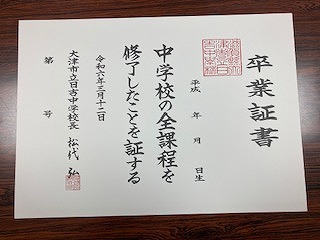 卒業証書
平成　年　月　日生
中学校の全課程を
修了したことを証する
令和六年三月十二日
大津市立日吉中学校長　松代　弘
第　　号